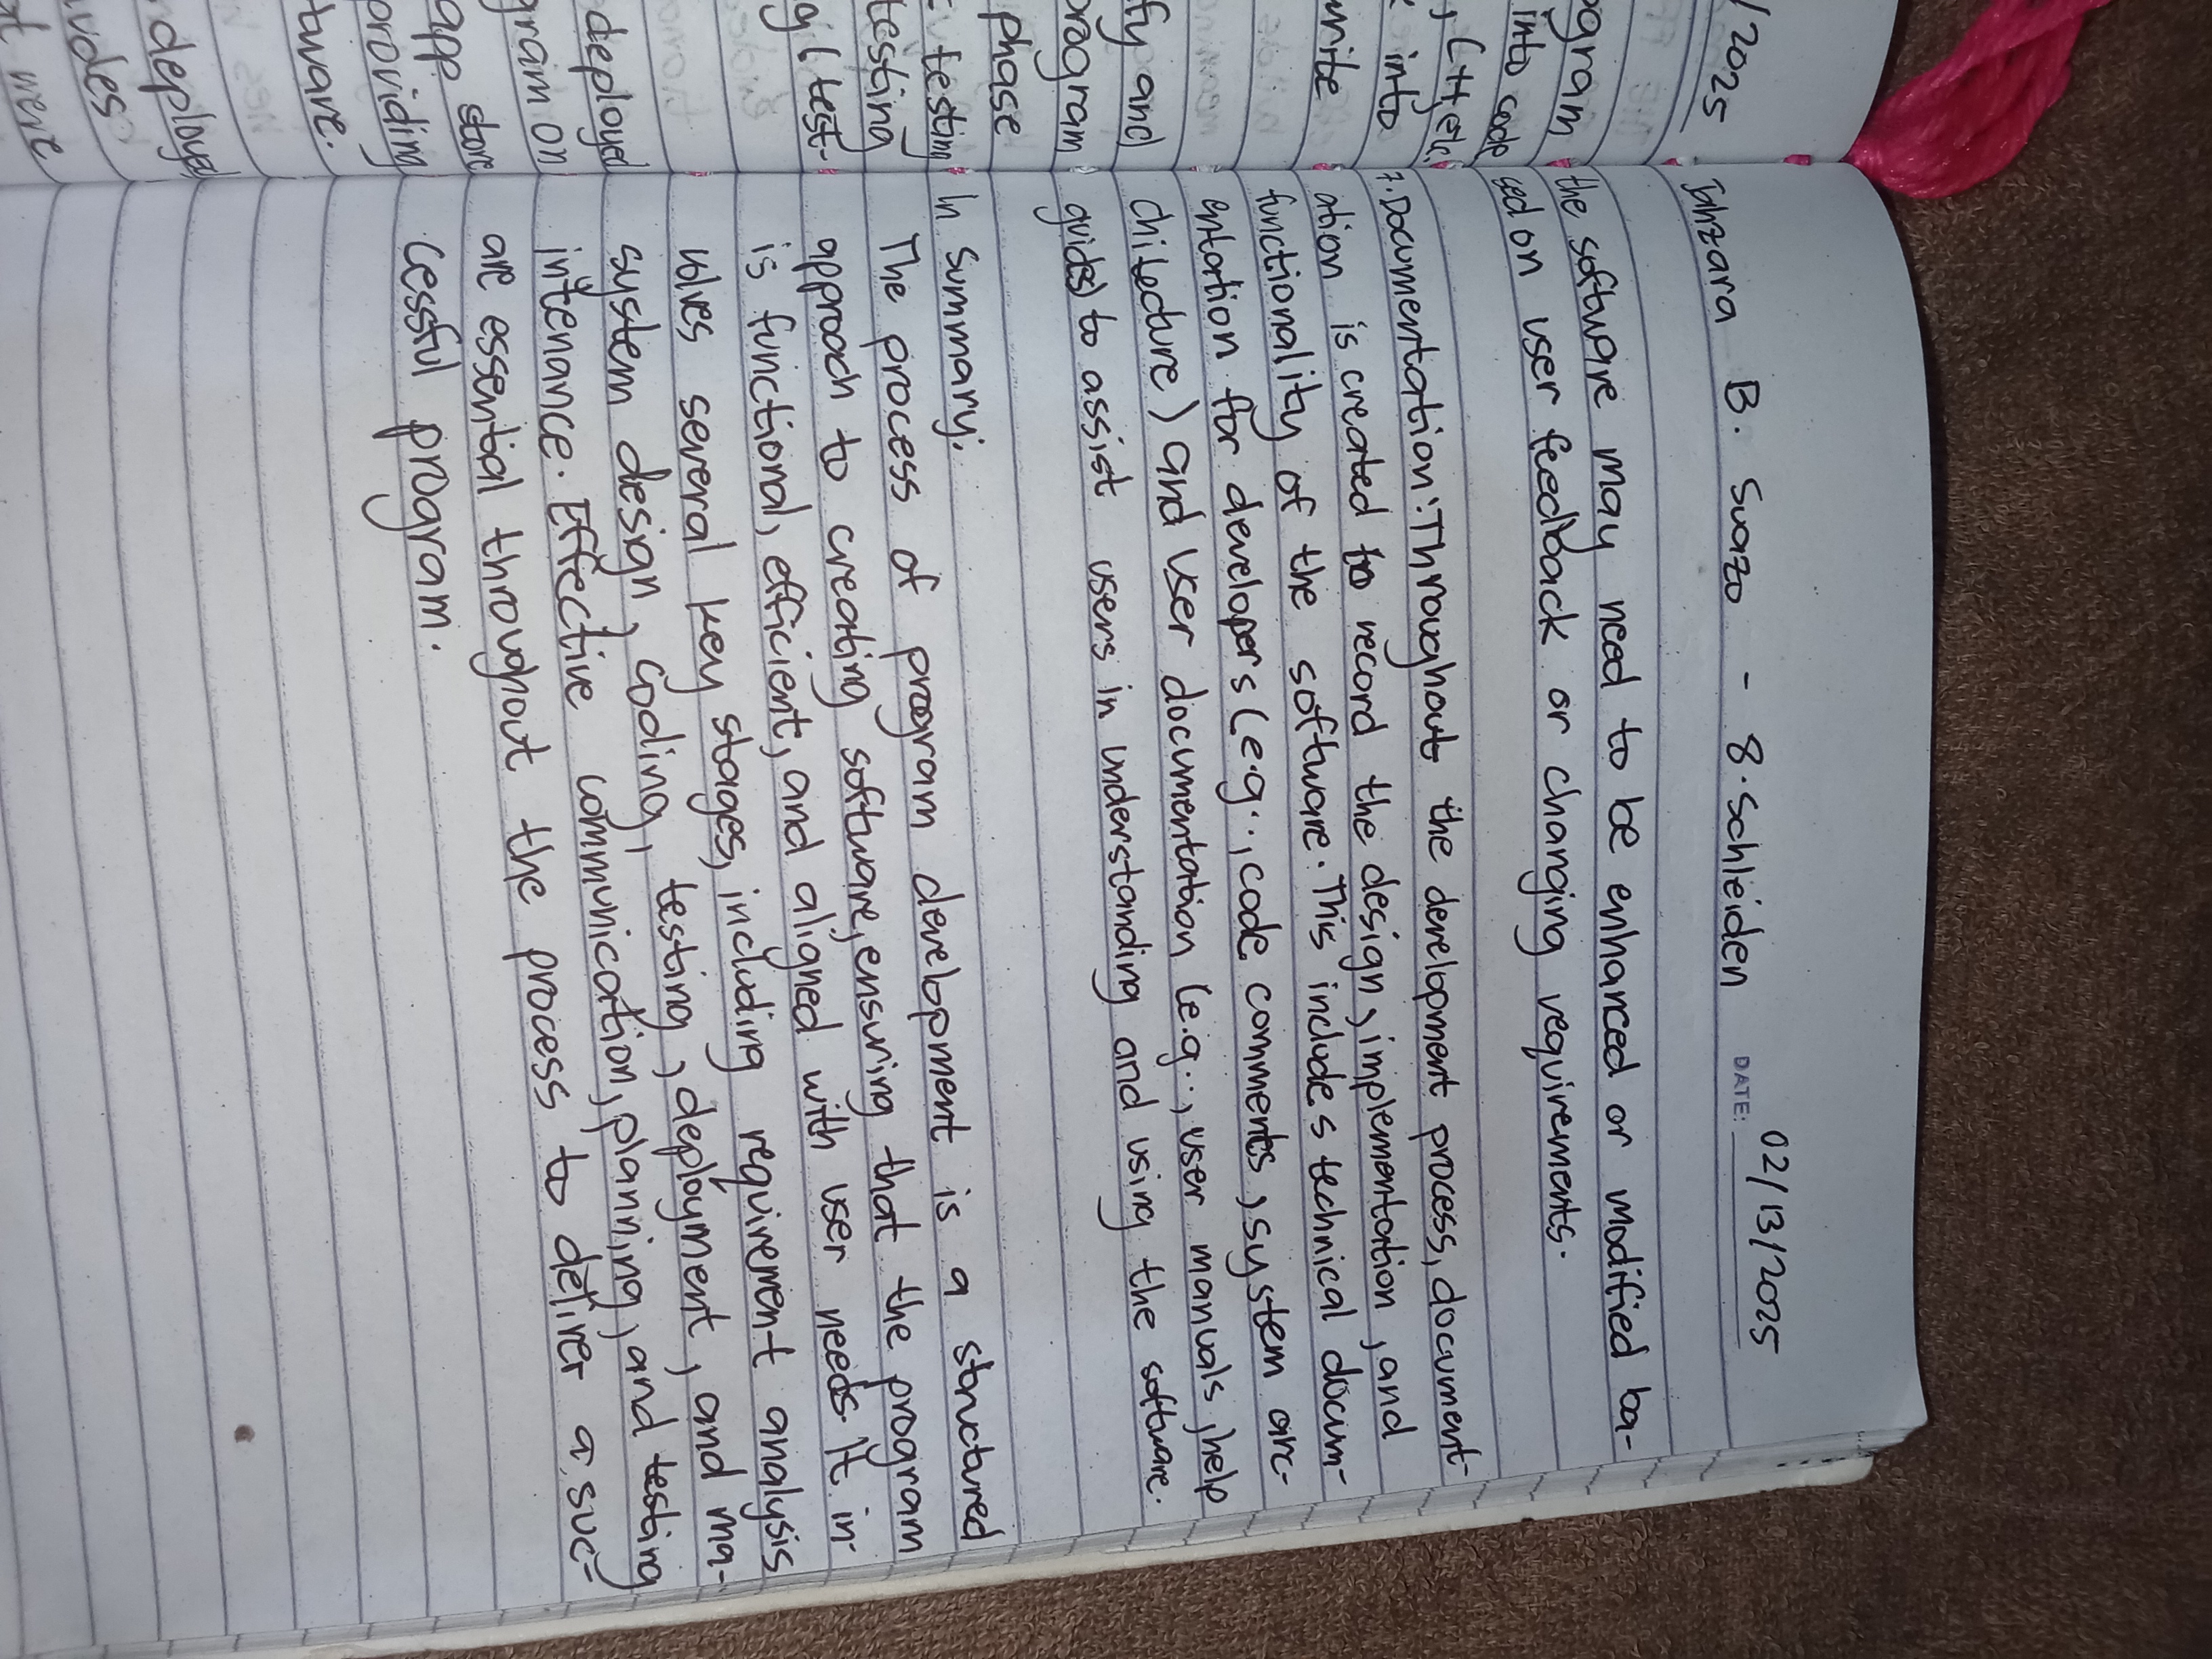 /2025
ogram
into code
, C++, etc.
into
write
fy and
program
phase
testing
testing
g ( test-
deployed
gram on
app store
providing
tware.
deployed,
udes
at were
Jahzara B. Suazo - 8. Schleiden DATE: 02/13/2025
the software may need to be enhanced or modified ba-
sed on user feedback or changing requirements.
7. Documentation: Throughout the development process, document-
ation is created to record the design, implementation, and
functionality of the software. This includes technical docum-
entation for developers (e.g.., code comments, system arc-
chitecture) and user documentation (e.g.., user manuals, help
guides) to assist users in understanding and using the software.
In Summary:
The process of program development is a structured
approach to creating software, ensuring that the program
is functional, efficient, and aligned with user needs. It in-
volves several key stages, including requirement analysis
system design, coding, testing, deployment, and ma-
intenance. Effective communication, planning, and testing
are essential throughout the process to deliver a suc-
cessful program.